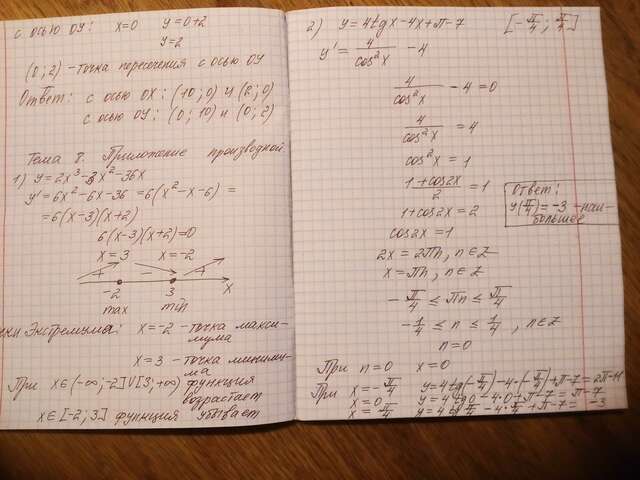 с осью OY: x=0 y=0+2
y=2
(0;2) - точка пересечения с осью OY
Ответ: с осью OX: (10;0) и (2;0)
с осью OY: (0;10) и (0;2)
Тема 8. Приложение производной
1) y=2x³-3x²-36x
y'=6x²-6x-36=6(x²-x-6)=
=6(x-3)(x+2)
6(x-3)(x+2)=0
x=3 x=-2
+ - +
-2 3 x
max min
Экстремума: x=-2 - точка макси-
мума
x=3 - точка миниму-
ма
При x∈(-∞;-2]∪[3;+∞) функция
возрастает
x∈[-2;3] функция убывает
2) y=4tgx-4x+π-7 [-π/4; π/4]
y'=4/cos²x -4
4/cos²x -4=0
4/cos²x =4
cos²x=1
(1+cos2x)/2=1
1+cos2x=2
cos2x=1
2x=2πn, n∈Z
x=πn, n∈Z
-π/4 ≤ πn ≤ π/4
-1/4 ≤ n ≤ 1/4, n∈Z
n=0
Ответ:
y(π/4)=-3 - наи-
большее
При n=0 x=0
При x=-π/4 y=4tg(-π/4)-4·(-π/4)+π-7=2π-11
x=0 y=4tg0-4·0+π-7=π-7
x=π/4 y=4tgπ/4-4·π/4+π-7=-3